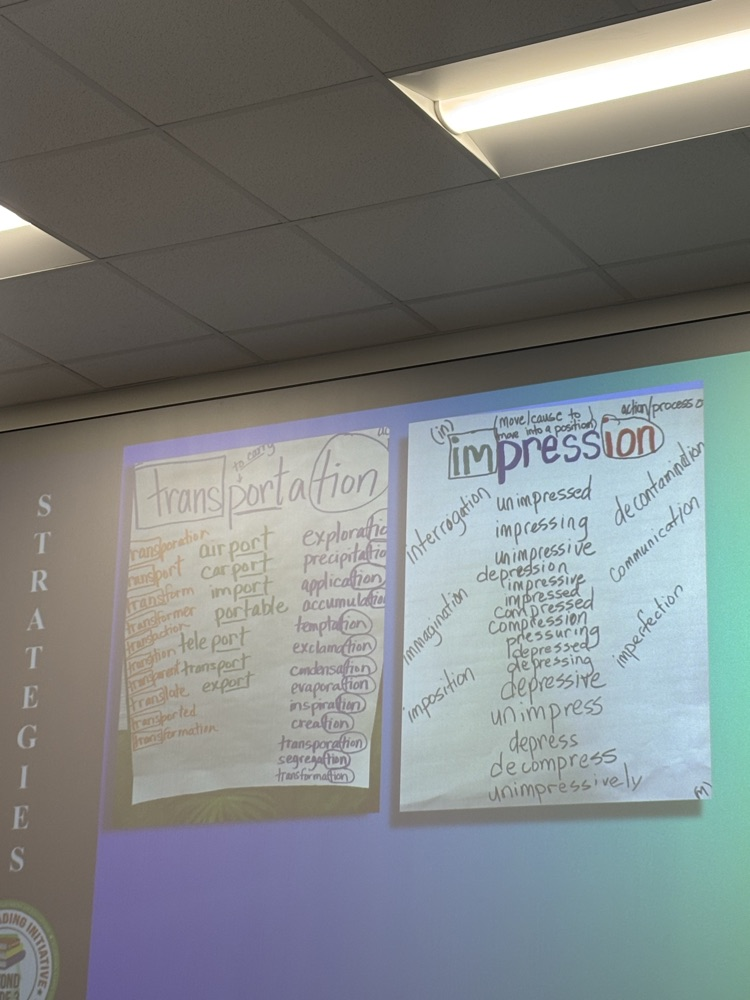 STRATEGIES
to carry
transportation
transporation
transport
transform
transformer
transaction
transition
transparent
translate
transported
transformation
airport
carport
import
portable
teleport
transport
export
exploratio
precipitatio
application
accumulatio
temptation
exclamation
condensation
evaporation
inspiration
creation
transporation
segregation
transformation
(in)
(move/cause to
move into a position)
action/process
impression
interrogation
immagination
imposition
unimpressed
impressing
unimpressive
depression
impressive
impressed
compressed
compression
pressuring
depressed
depressing
depressive
unimpress
depress
decompress
unimpressively
decontamination
communication
imperfection
(M)
ADING INITIATIVE